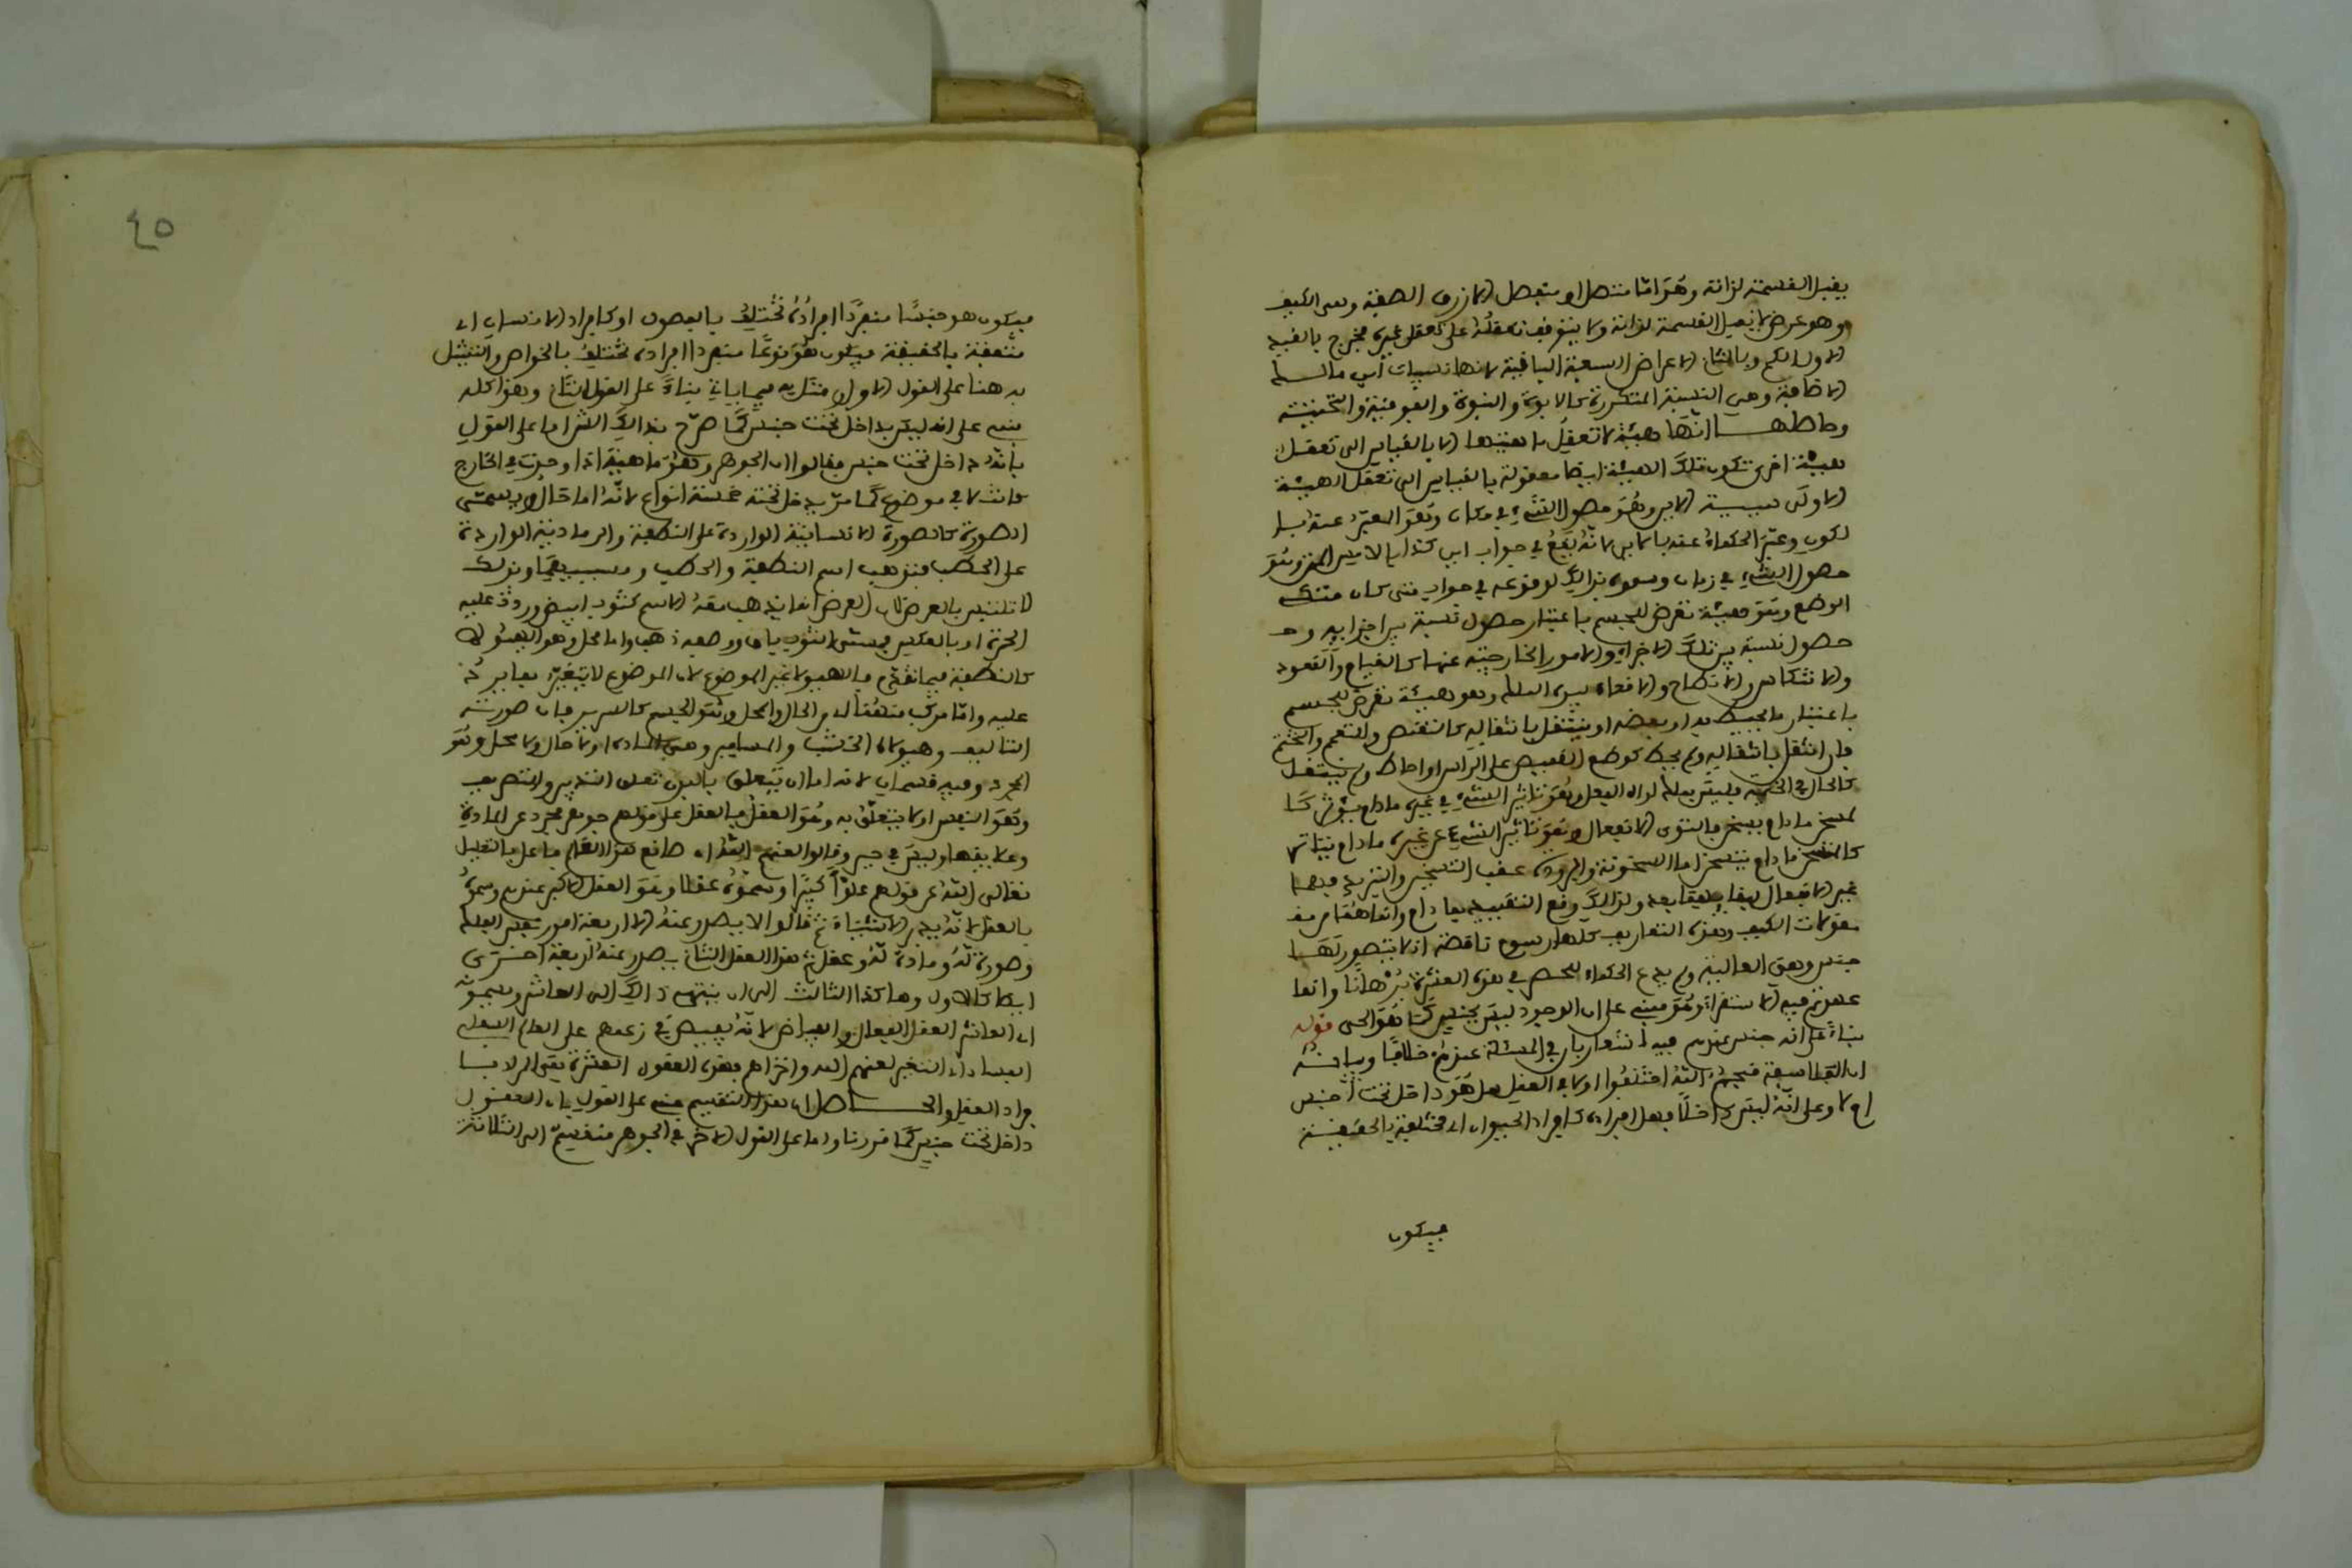 يقبل القسمة لذاته وهو اما متصل او منفصل الازرق الصفة ومن الكيف
وهو عرض لا يقبل القسمة لذاته ولا يتوقف تعقله على تعقل غيره مخرج بالقيد
الاول الكم وبالثاني الاعراض السبعة الباقية لانها نسبيات
الاضافة وهي النسبة المتكررة كالابوة والبنوة والفوقية والتحتية
انها هيئة لا تعقل ماهيتها الا بالقياس الى تعقل
هيئة اخرى تكون تلك الهيئة ايضا معقولة بالقياس الى تعقل الهيئة
الاولى الاين وهو حصول الشيء في مكان وهو المعبر عنه
لكون وعبر الحكماء عنه بالاين لانه يقع في جواب اين كذا وهو
حصول الشيء في زمان وسموه بذالك لوقوعه في جواب متى كان
الوضع وهو هيئة تعرض للجسم باعتبار حصول نسبة بين اجزايه و
حصول نسبة بين تلك الاجزاء والامور الخارجية عنها كالقيام والقعود
والاتكاء والانبطاح والاقعاء الملك وهو هيئة تعرض للجسم
باعتبار ما يحيط به او ببعضه او ينتقل بانتقاله كالتقمص والتعمم والتختم
فان انتقل بانتقاله ولم يحط كوضع القميص على الراس او احاط ولم ينتقل
كالحال في الخيمة فليس بملك الفعل وهو تاثير الشيء في غيره ما دام يوثر كا
لمسخن ما دام يسخن الانفعال وهو تاثر الشيء عن غيره ما دام يتاثر
كالمتسخن ما دام يتسخن اما السخونة والبرودة عقب التسخين والتبريد فهما
غير الانفعال لبقايهما بعده ولذالك وقع التقييد بما دام وانما هما من
مقولات الكيف وهذه التعاريف كلها رسوم ناقصة اذ لا يتصور لها
جنس وهي العالية ولم يدع الحكماء للحصر في هذه العشرة برهانا وانما
عمدتهم فيه الاستقراء وهو مبني على ان الوجود ليس بجنس كما هو الحق قوله
بناء على انه جنس عندهم فيه اشعار بان في المسئلة عندهم خلافا وبيانه
ان الفلاسفة قبحهم الله اختلفوا اولا في العقل هل هو داخل تحت جنس
ام لا وعلى انه ليس داخلا فهل افراده كافراد الحيوان اي مختلفة بالحقيقة
فيكون
٤٥
فيكون هو جنسا منفردا افراده تختلف بالفصول او كافراد الانسان اي
متفقة بالحقيقة فيكون هو نوعا منفردا افراده تختلف بالخواص والتمثيل
به هنا على القول الاول فيما ياتي بناء على القول الثاني وهذا كله
مبني على انه ليس بداخل تحت جنس كما صرح بذالك الش اما على القول
بانه داخل تحت جنس فقالوا ان الجوهر وهو ماهية اذا وجدت في الخارج
كانت لا في موضوع كما مر يدخل تحته خمسة انواع لانه اما حال ويسمى
الصورة كالصورة الانسانية الواردة على النطفة والرمادية الواردة
على الحطب فتذهب اسم النطفة والحطب
لا تلتبس بالعرض لان العرض انما يذهب معه الاسم كثوب ابيض وردت عليه
الحمرة او بالعكس فمسمى الثوب باق ووصفه ذهب واما محل وهو الهيولى
كالنطفة فيما تقدم فالهيولى غير الموضوع لان الموضوع لا يتغير بما يرد
عليه واما مركب منهما اي من الحال والمحل وهو الجسم كالسرير فان صورته
التاليف وهيولاه الخشب والمسامير وهي المادة او لا حال ولا محل وهو
المجرد وفيه قسمان لانه اما ان يتعلق بالبدن تعلق التدبير والتصرف
وهو النفس او لا يتعلق به وهو العقل فالعقل على قولهم جوهر مجرد عن المادة
وعلايقها وليس في حيز وقالوا لعنهم الله ان صانع هذا العالم فاعل بالتعليل
تعالى الله عن قولهم علوا كبيرا وسموه عقلا وهو العقل الاكبر عندهم وسموه
بالعقل لانه يدبر الاشياء ثم قالوا لا يصدر عنه الا اربعة امور نفس الفلك
وصورة له ومادة له وعقل ثم هذا العقل الثاني يصدر عنه اربعة اخرى
ايضا كالاول وهاكذا الثالث الى ان ينتهي ذالك الى العاشر ويسمونه
اي العاشر العقل الفعال والفياض لانه يفيض في زعمهم على العالم السفلي
الفساد اي التغير لعنهم الله واخزاهم فهذه العقول العشرة هي المراد با
فراد العقل والحاصل ان هذا التقسيم مبني على القول بان العقول
داخل تحت جنس كما قررنا واما على القول الاخر في الجوهر منقسم الى الثلاثة